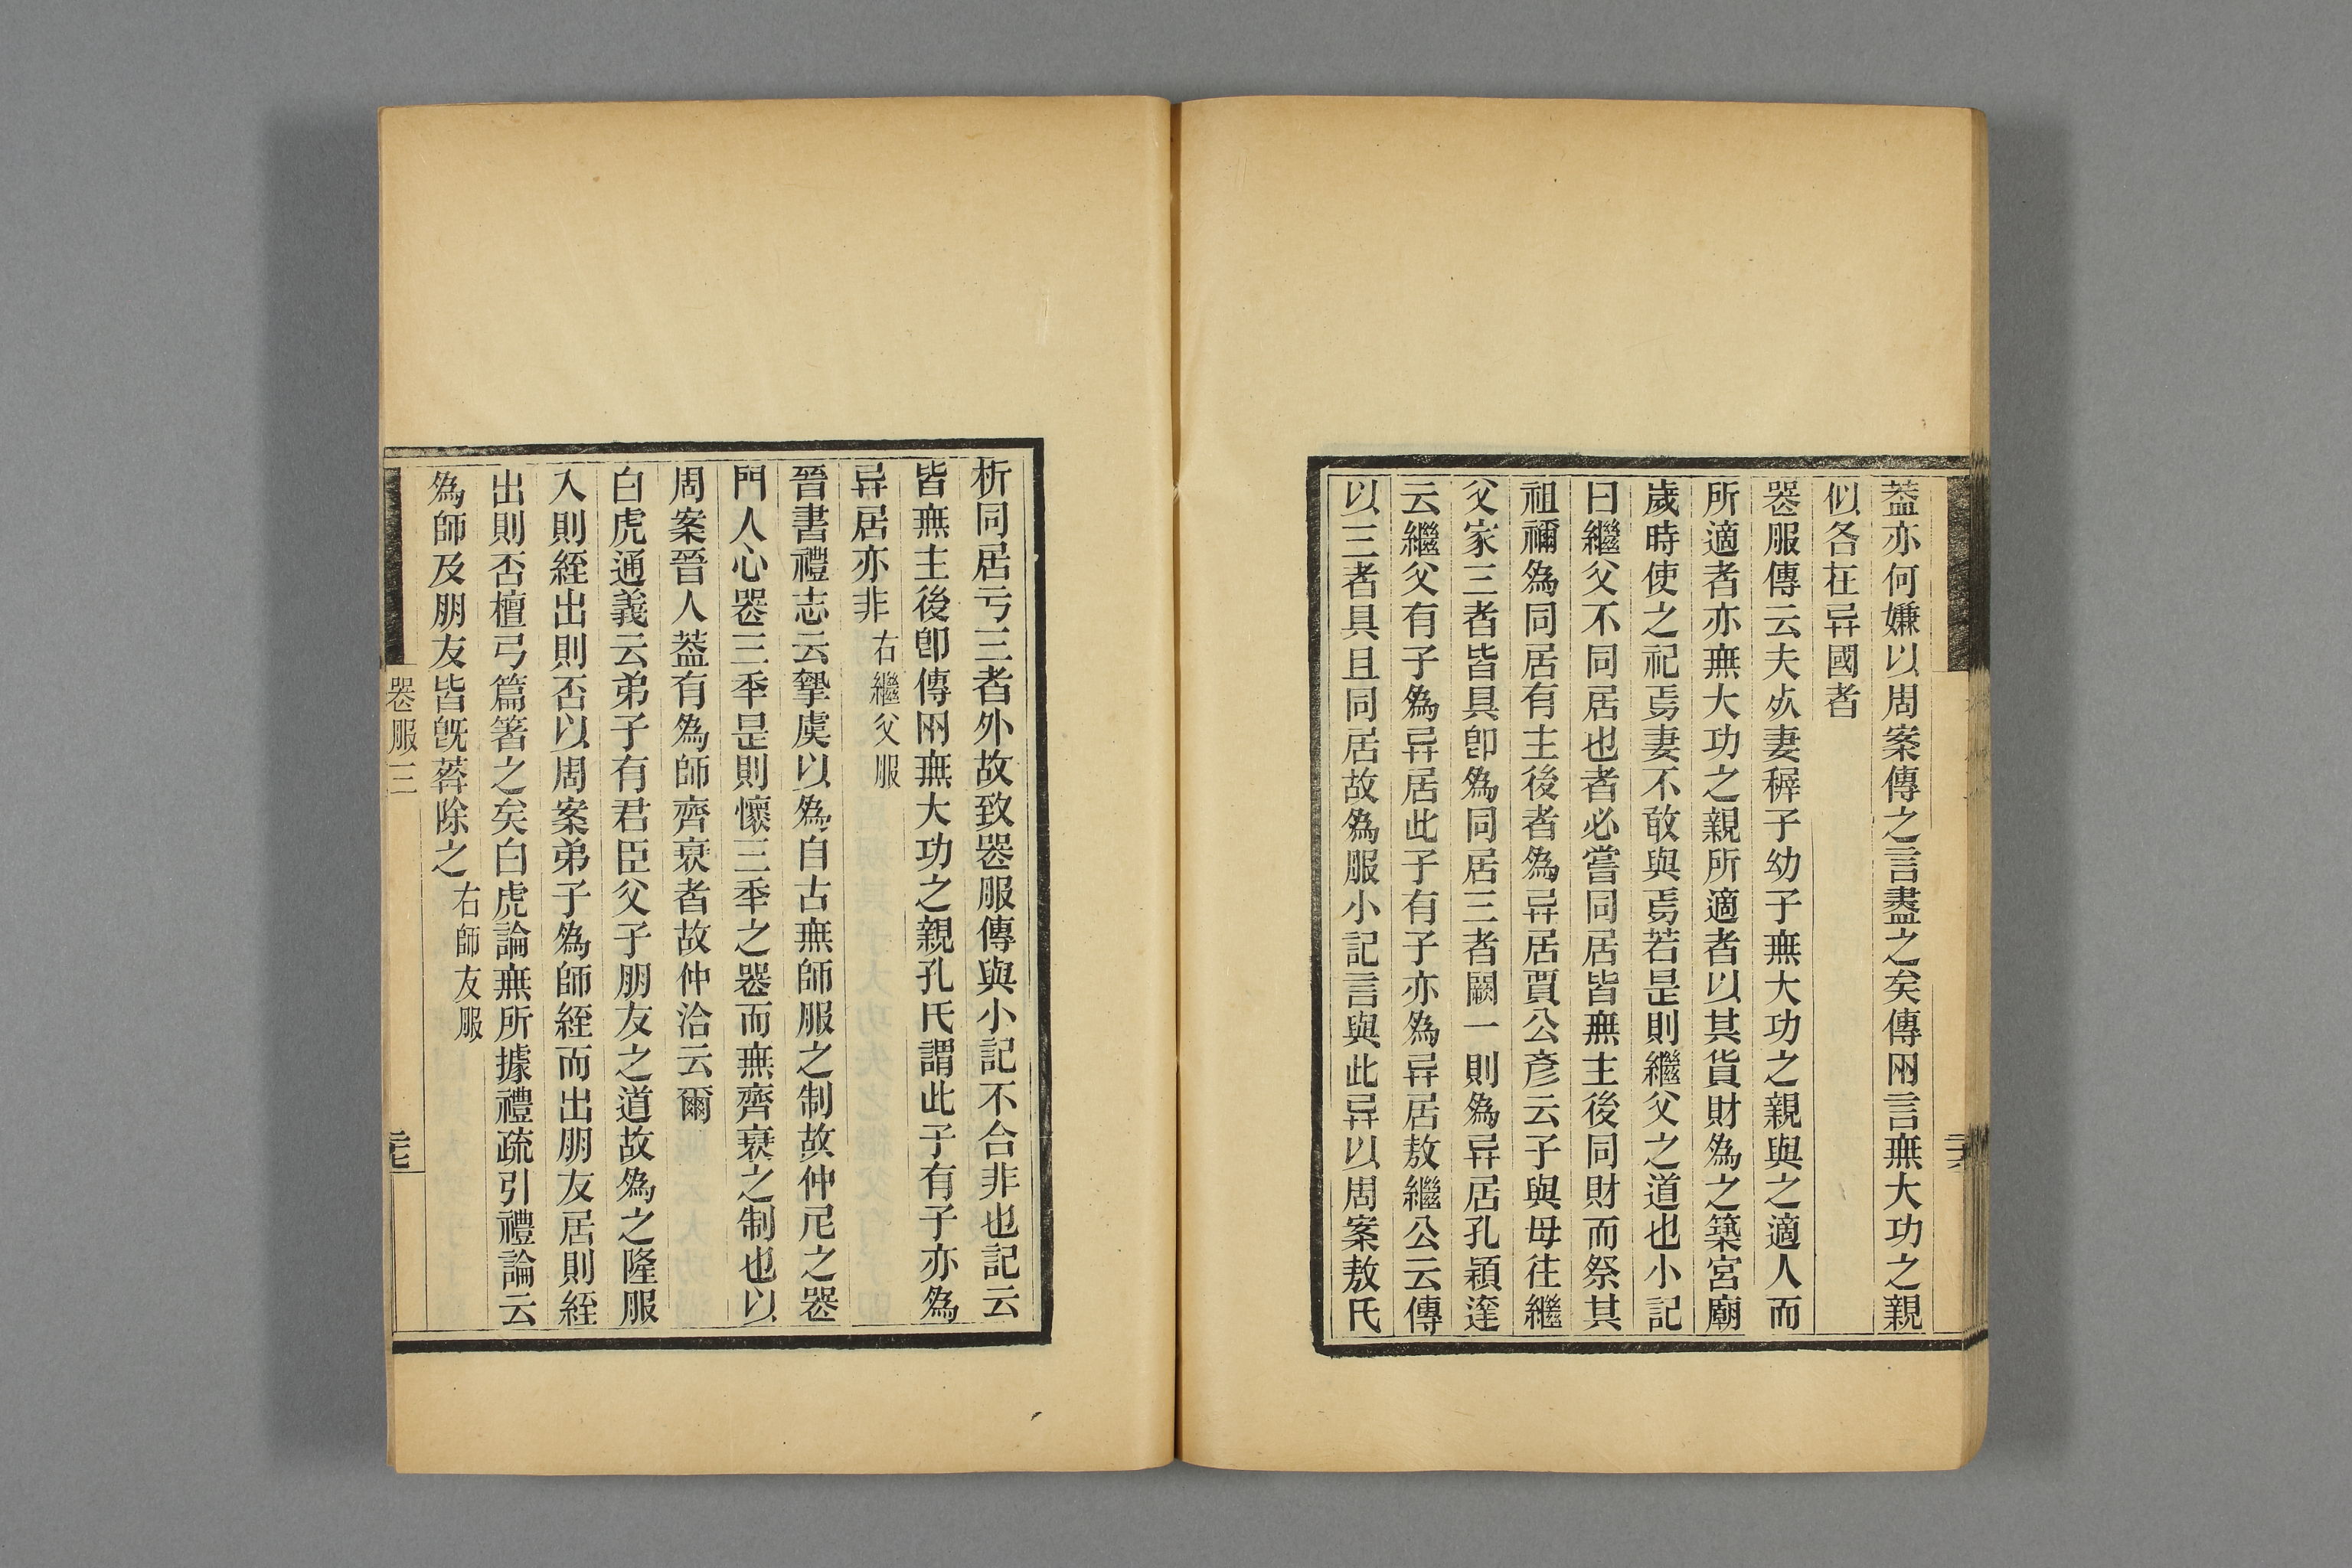 葢亦何嫌以周案傳之言盡之矣傳兩言無大功之親
似各在异國者
喪服傳云夫㱙妻稺子幼子無大功之親與之適人而
所適者亦無大功之親所適者以其貨財為之築宮廟
歲時使之祀焉妻不敢與焉若是則繼父之道也小記
曰繼父不同居也者必嘗同居皆無主後同財而祭其
祖禰為同居有主後者為异居賈公彥云子與母往繼
父家三者皆具卽為同居三者闕一則為异居孔穎達
云繼父有子為异居此子有子亦為异居敖繼公云傳
以三者具且同居故為服小記言與此异以周案敖氏
析同居亏三者外故致喪服傳與小記不合非也記云
皆無主後卽傳兩無大功之親孔氏謂此子有子亦為
异居亦非 右繼父服
晉書禮志云摯虞以為自古無師服之制故仲尼之喪
門人心喪三秊是則懷三秊之喪而無齊衰之制也以
周案晉人葢有為師齊衰者故仲洽云爾
白虎通義云弟子有君臣父子朋友之道故為之隆服
入則絰出則否以周案弟子為師絰而出朋友居則絰
出則否檀弓篇箸之矣白虎論無所據禮疏引禮論云
為師及朋友皆旣葬除之 右師友服
喪服三